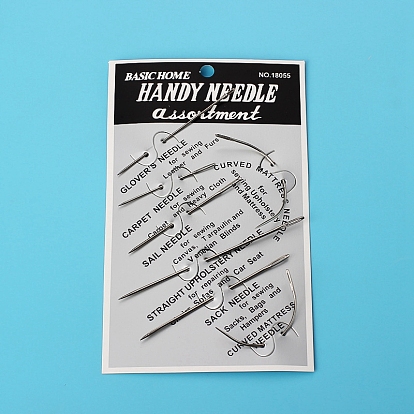 BASIC HOME
NO.18055
HANDY NEEDLE
assortment
GLOVER'S NEEDLE
for sewing
Leather and Furs
CURVED MATTRESS NEEDLE
for
sewing Upholstery
and Mattress
CARPET NEEDLE
for sewing
Carpet and Heavy Cloth
SAIL NEEDLE
for sewing
Canvas, Tarpaulin and
Venetian Blinds
STRAIGHT UPHOLSTERY NEEDLE
for repairing
Sofas and Car Seat
SACK NEEDLE
for sewing
Sacks, Bags and
Hampers
CURVED MATTRESS
NEEDLE